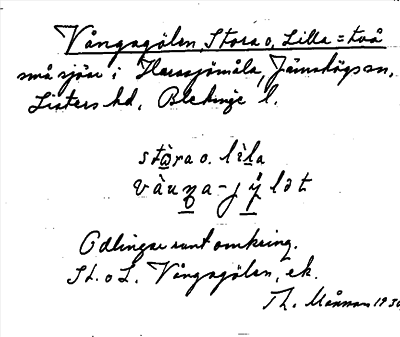 Vångagölen, Stora o. Lilla = två
små sjöar i Harasjömåla, Jämshögs sn,
Listers hd, Blekinge l.
stò̱ra o. lìḻa
vàuŋa-jÿlət
Odlingar runt omkring.
St. o L. Vångagölen, ek.
Th. Månsson 1930